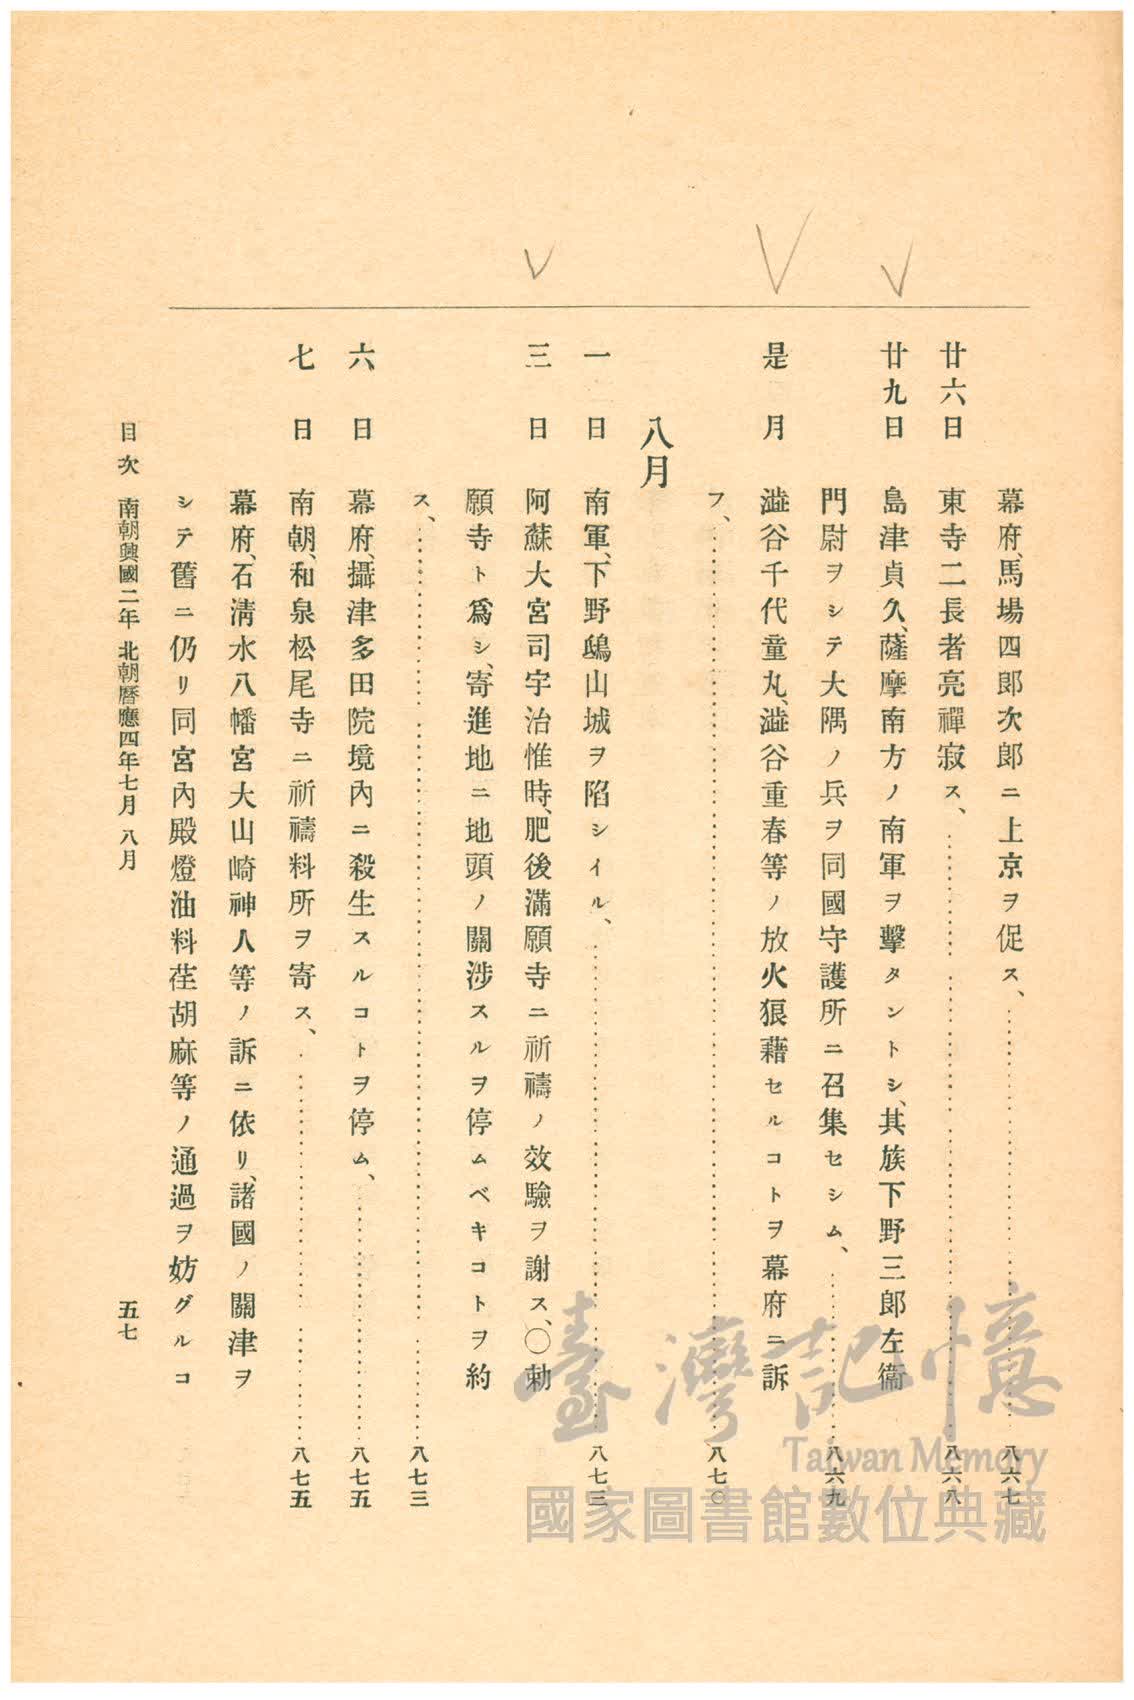 幕府、馬場四郎次郎ニ上京ヲ促ス、……八六七
廿六日 東寺二長者亮禪寂ス、……八六八
廿九日 島津貞久、薩摩南方ノ南軍ヲ擊タントシ、其族下野三郎左衞
門尉ヲシテ大隅ノ兵ヲ同國守護所ニ召集セシム、……八六九
是月 澁谷千代童丸、澁谷重春等ノ放火狼藉セルコトヲ幕府ニ訴
フ、……八七〇
八月
一日 南軍、下野鴟山城ヲ陷シイル、……八七三
三日 阿蘇大宮司宇治惟時、肥後滿願寺ニ祈禱ノ效驗ヲ謝ス、〇勅
願寺ト爲シ、寄進地ニ地頭ノ關涉スルヲ停ムベキコトヲ約
ス、……八七三
六日 幕府、攝津多田院境內ニ殺生スルコトヲ停ム、……八七五
七日 南朝、和泉松尾寺ニ祈禱料所ヲ寄ス、……八七五
幕府、石淸水八幡宮大山崎神人等ノ訴ニ依リ、諸國ノ關津ヲ
シテ舊ニ仍リ同宮內殿燈油料荏胡麻等ノ通過ヲ妨グルコ
目次 南朝興國二年 北朝曆應四年七月 八月 五七
臺灣記憶
Taiwan Memory
國家圖書館數位典藏